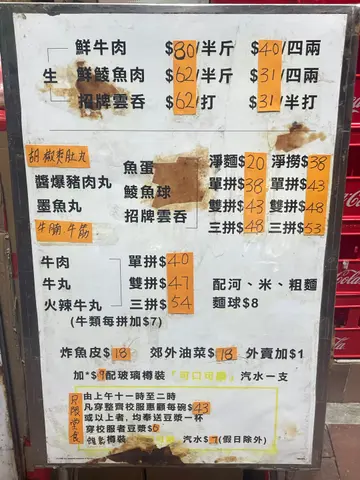 鮮牛肉 $80/半斤 $40/四兩
生 鮮鯪魚肉 $62/半斤 $31/四兩
招牌雲吞 $62/打 $31/半打
胡椒爽肚丸 魚蛋 淨麵$20 淨撈$38
醬爆豬肉丸 鯪魚球 單拼$38 單拼$43
墨魚丸 招牌雲吞 雙拼$43 雙拼$48
牛腩 牛筋 三拼$48 三拼$53
牛肉 單拼$40
牛丸 雙拼$47 配河、米、粗麵
火辣牛丸 三拼$54 麵球$8
(牛類每拼加$7)
炸魚皮$18 郊外油菜$18 外賣加$1
加*$9配玻璃樽裝「可口可樂」汽水一支
只限堂食
由上午十一時至二時
凡穿整齊校服惠顧每碗$43
或以上者，均奉送豆漿一杯
穿校服者豆漿$5
樽裝 汽水$7(假日除外)